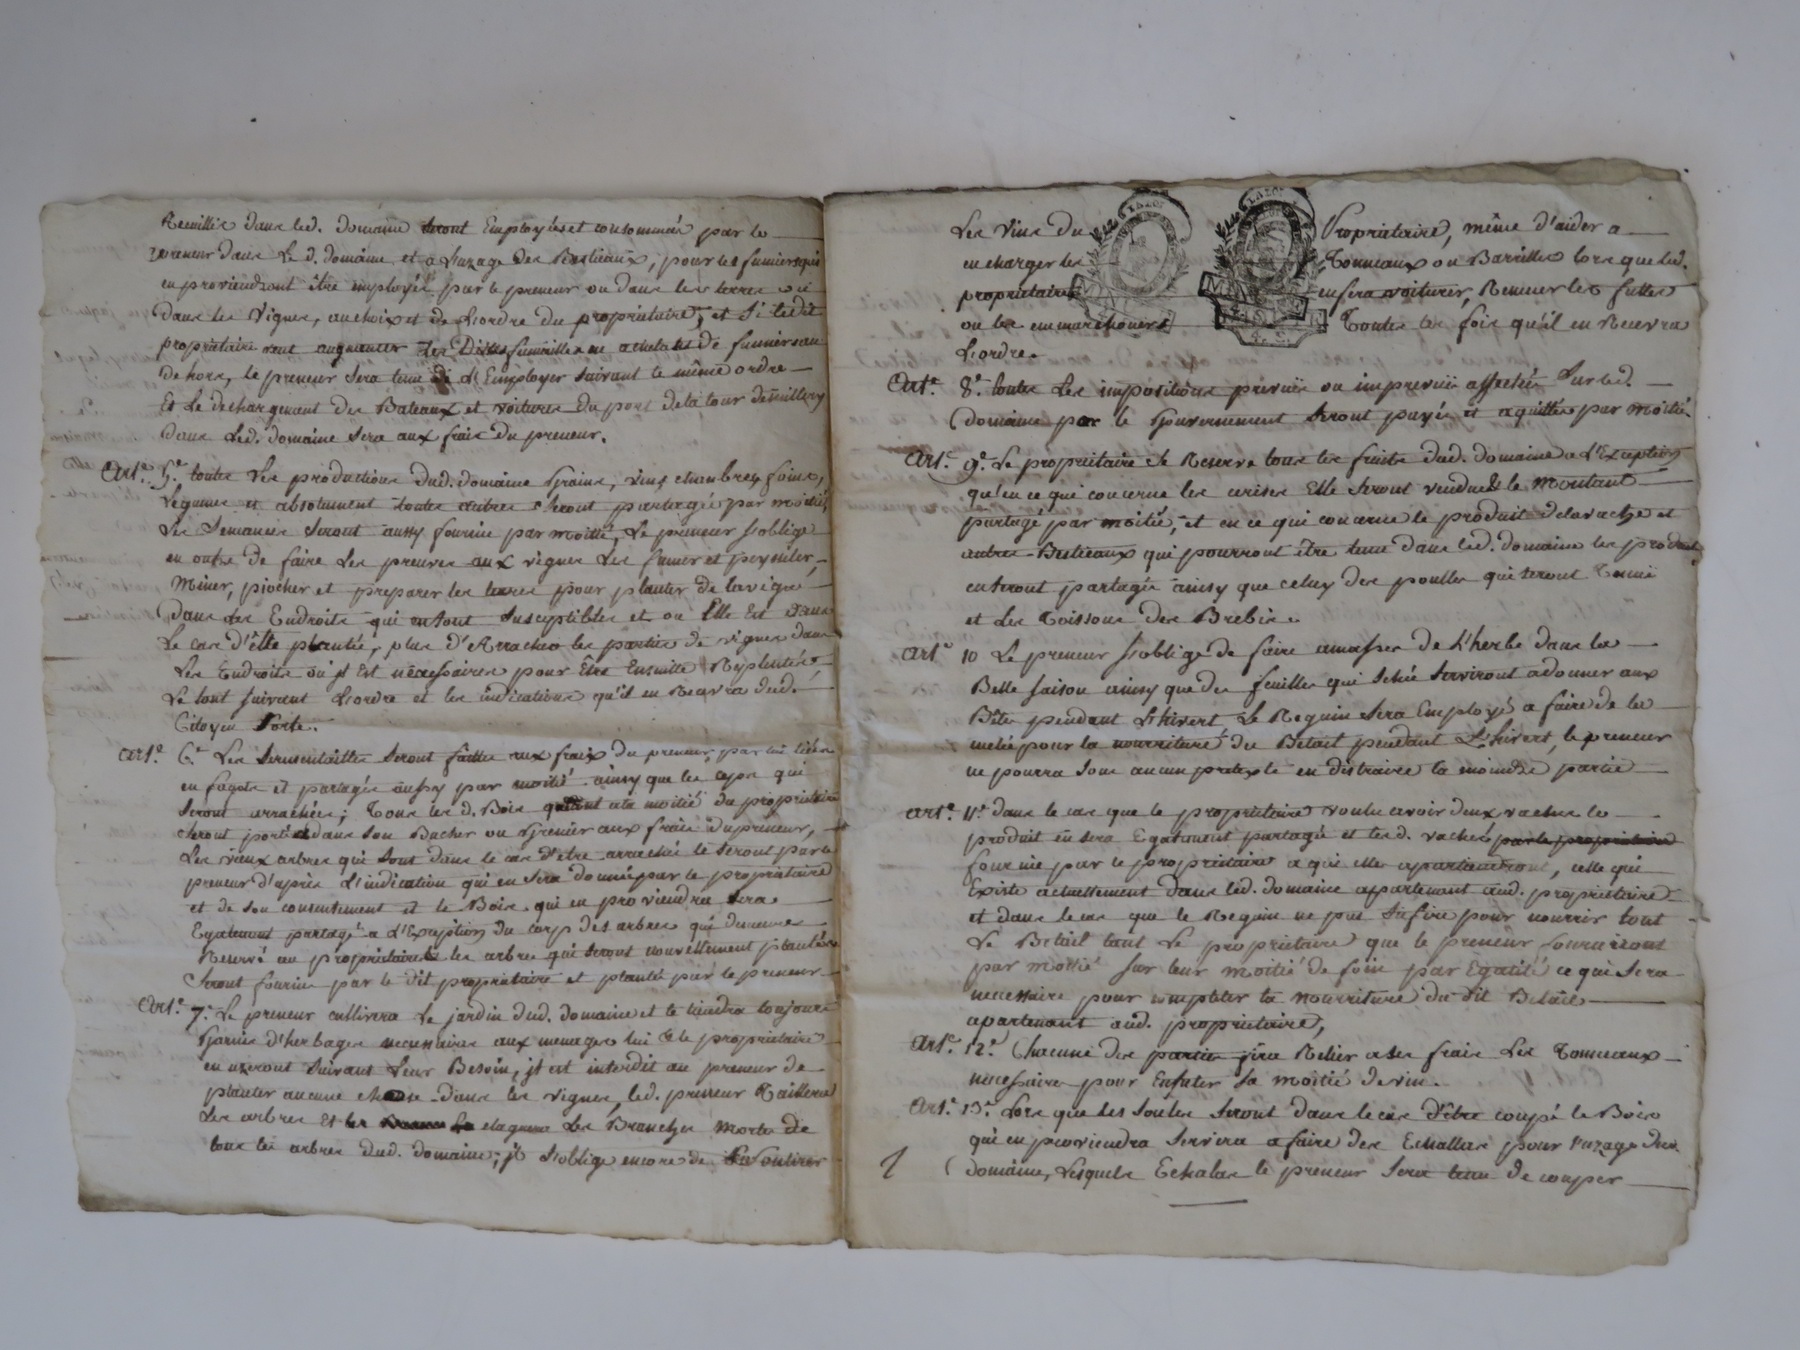 Recuillis dans led. domaine seront Employés et consommés par le
preneur dans Le d. domaine et a L'uzage des Bestieaux, pour les fumiers qui
en proviendront être employés par le preneur ou dans les terres ou
dans les Vignes, au choix et de L'ordre du propriétaire, et Si ledit
propriétaire veut augmenter Les Dittes fumailles ou achetes de fumiers au
dehors, le preneur Sera tenu de L'Employer Suivant le même ordre
Et Le dechargement des Bateaux et voitures du port de la tour
dans Led. domaine Sera aux frais du preneur.
Art.e 5.e toutes Les productions dud. domaine Grains, vins, chambres, foins,
Légumes et absolument toutes autres Seront partagés par moitié,
Les Semances Seront aussy fournie par moitié, Le preneur s'oblige
en outre de faire Les preuves aux vignes Les fumer et
Miner, piocher et préparer les terres pour planter de la vigne
dans Les Endroits qui en sont Susceptibles et ou Elle Est dans
Le cas d'être plantée, plus d'Arracher les parties de vignes dans
Les Endroits ou jl Est nécessaires pour Etre Ensuitte Replentés
Le tout Suivant L'ordre et les indications qu'il en Recevra dud.
Citoyen Porte.
Art.e 6.e Les Sermentailles Seront faittes aux fraix du preneur, par lui liées
en fagots et partagés aussy par moitié ainsy que les ceps qui
Seront arrachées; Tous les d. Bois quant a la moitié du propriétaire
Seront portés dans Son Bucher ou Grenier aux frais du preneur,
Les vieux arbres qui Sont dans le cas d'etre arrachés le Seront par le
preneur d'après L'indication qui en Sera donné par le propriétaire
et de Son consentement et le Bois qui en proviendra Sera
Egalement partagé a L'Exeption du corps des arbres qui demeure
Reservé au propriétaire les arbres qui Seront nouvellement plantés
Seront fournis par le dit propriétaire et planté par le preneur
Art.e 7.e Le preneur cultivera Le jardin dud. domaine et le tiendra toujours
Garnis d'herbages necessaires aux menages lui & le propriétaire
en useront Suivant Leur Besoin, jl est interdit au preneur de
planter aucune chose dans les vignes, led. preneur Taillera
Les arbres Et les elaguera Les Branches Mortes de
tous les arbres dud. domaine, jl s'oblige encore de Soutirer
Les Vins du Propriétaire, même d'aider a
en charger les Tonneaux ou Barrilles lors que led.
propriétaire en fera voiturer, Remuer les futtes
ou les Toutes les fois qu'il en Recevra
L'ordre.
Art.e 8.e toutes Les impositions prevues ou imprevües affectées Sur led.
domaine par le Gouvernement Seront payés et aquittés par moitié.
Art.e 9.e Le propriétaire se Reserve tous les fruits dud. domaine a L'Exeption
qu'en ce qui concerne les cerises Elle Seront vendues & le Montant
partagé par moitié, et en ce qui concerne le produit de la vache et
autres Bestieaux qui pourront être tenu dans led. domaine les produits
en Seront partagés ainsy que celuy des poulles qui Seront Tenüe
et Les Toissons des Brebis.
Art.e 10 Le preneur s'oblige de faire amasser de L'herbe dans la
Belle saison ainsy que des feuilles qui Séchée Serviront a donner aux
Bêtes pendant L'hivert Le Reguin Sera Employé a faire de la
mélée pour la nourriture du Betail pendant L'hivert, le preneur
ne pourra Sous aucun pretexte en distraire la moindre partie
Art.e 11.e dans le cas que le propriétaire voulu avoir deux vaches le
produit en Sera Egalement partagé et les d. vaches par le propriétaire
fournie par le propriétaire a qui elles apartiendront, celle qui
Existe actuellement dans led. domaine apartenant aud. propriétaire
et dans le cas que le Reguin ne put Sufire pour nourrir tout
Le Betail tant Le propriétaire que le preneur fourniront
par moitié Sur leur moitié de foin par Egalité ce qui Sera
necessaire pour completter la nourriture du dit Betail
apartenant aud. propriétaire,
Art.e 12.e Chacune des parties fera Relier a Ses frais Les Tonneaux
necessaires pour Enfuter Sa moitié de vin.
Art.e 13.e Lors que Les Soules Seront dans le cas d'être coupé le Bois
qui en proviendra Servira a faire des Echallas pour l'uzage dud.
domaine, Lesquels Echalas le preneur Sera tenu de couper